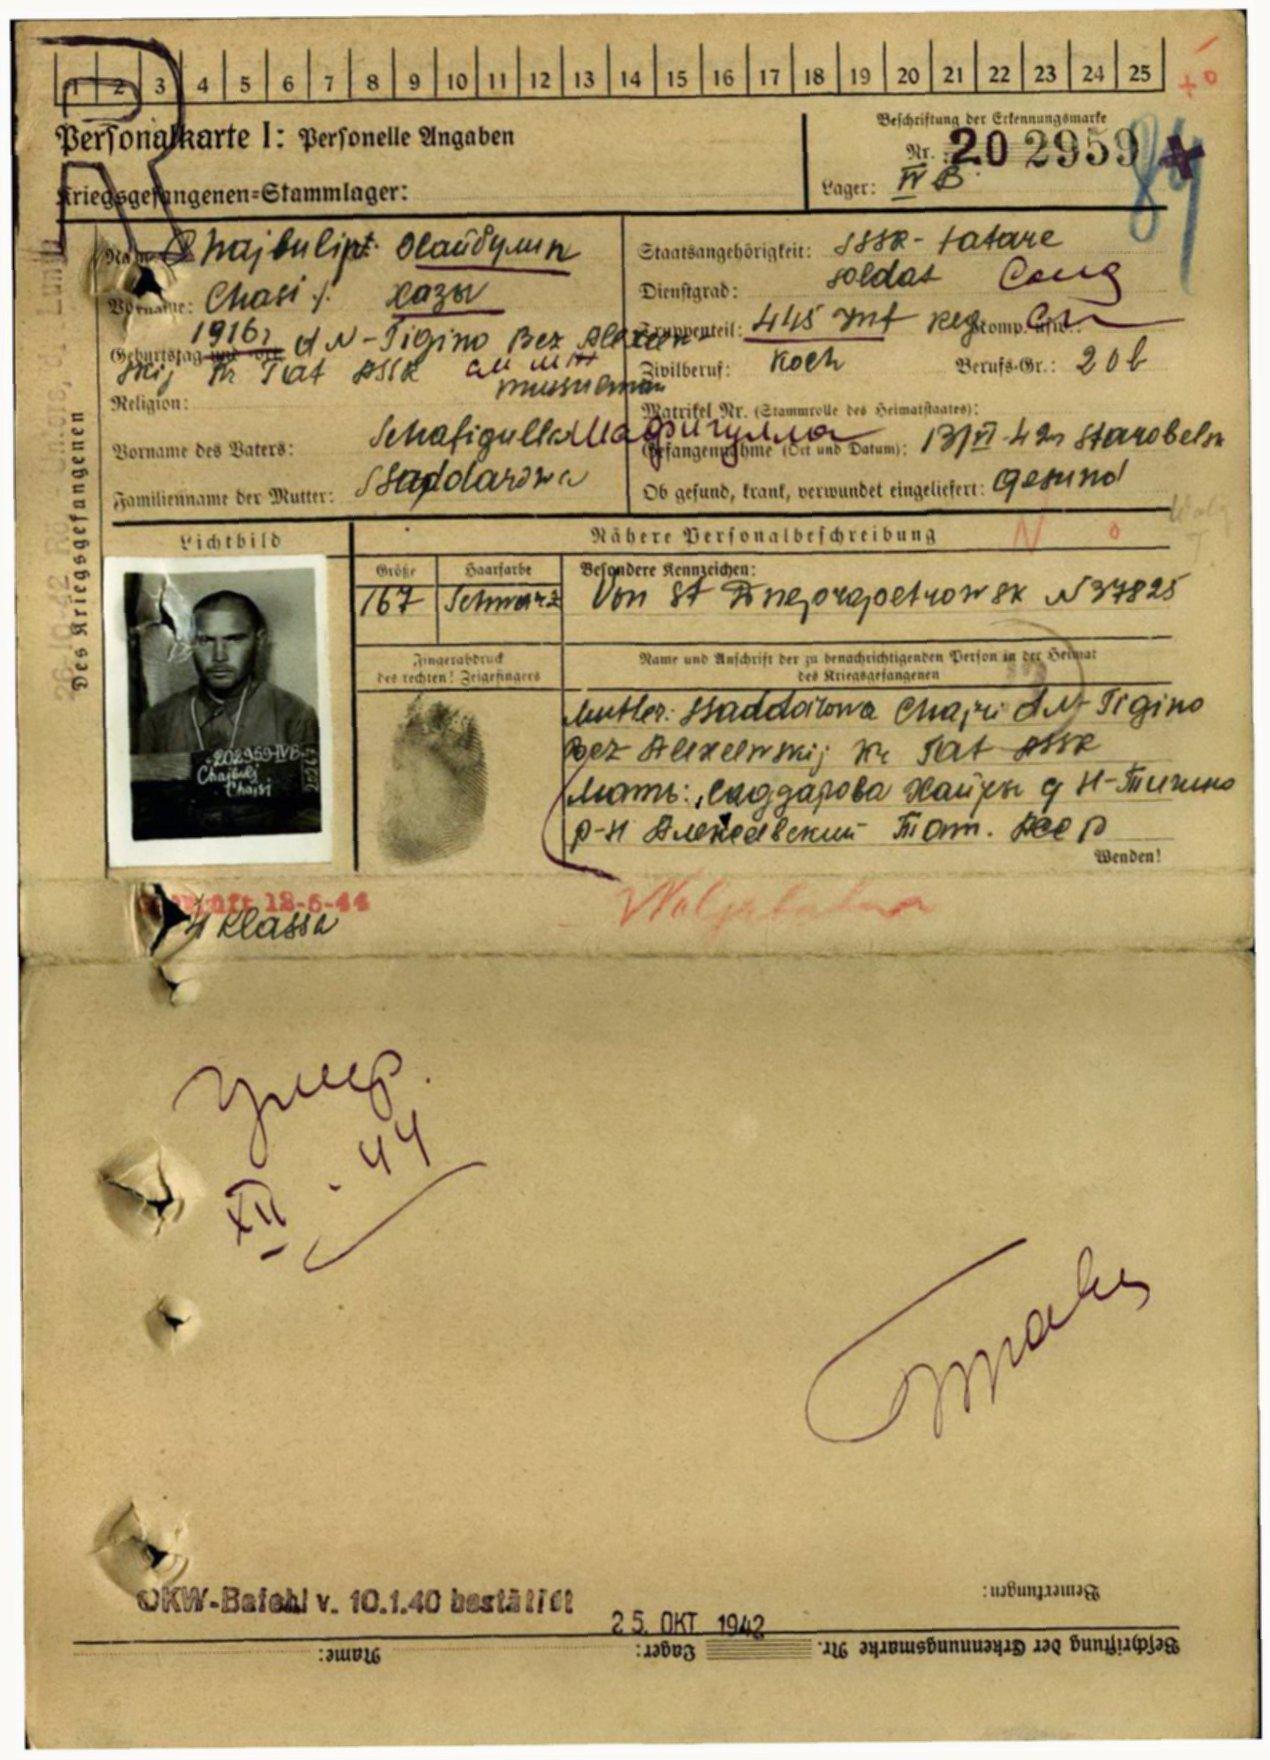 1 2 3 4 5 6 7 8 9 10 11 12 13 14 15 16 17 18 19 20 21 22 23 24 25
Personalkarte I: Personelle Angaben
Kriegsgefangenen-Stammlager:
Beschriftung der Erkennungsmarke
Nr. 202959
Lager: IV B
84
Des Kriegsgefangenen
Name: Chajbulin Хайбулин
Vorname: Chasi Хазы
1916
Geburtstag und Ort: d N-Tigino Bez Alexeew-
skij Kr Tat ASSR
Religion: musulman
Vorname des Vaters: Schafigulla Шафигулла
Familienname der Mutter: Ssaddarowa
Staatsangehörigkeit: SSSR-Tatare
Dienstgrad: Soldat Солд
Truppenteil: 445 Inf Reg Komp. usw.:
Zivilberuf: Koch Berufs-Gr.: 20b
Matrikel Nr. (Stammrolle des Heimatstaates):
Gefangennahme (Ort und Datum): 13/VI-42 Starobelsk
Ob gesund, krank, verwundet eingeliefert: Gesund
Lichtbild
Nähere Personalbeschreibung
Größe Haarfarbe Besondere Kennzeichen:
167 Schwarz Von St Dnepropetrowsk N 37825
Fingerabdruck
des rechten! Zeigefingers
Name und Anschrift der zu benachrichtigenden Person in der Heimat
des Kriegsgefangenen
Mutter: Ssaddarowa Chajri d N-Tigino
Bez Alexeewskij Kr Tat ASSR
Мать: Саддарова Хайры д Н-Тигино
р-н Алексеевский Тат. АССР
Wenden!
202959-IVB
Chajbuli
Chasi
12-6-44
4 Klassa
Умер.
XII - 44
OKW-Befehl v. 10.1.40 bestätigt
25. OKT. 1942
Bemerkungen:
Name: Lager: Beschriftung der Erkennungsmarke Nr.